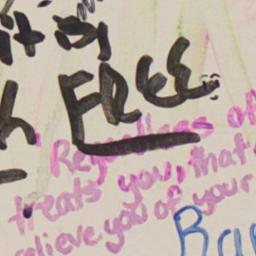 it is
FREE
Regardless of
treats you, that
relieve you of your